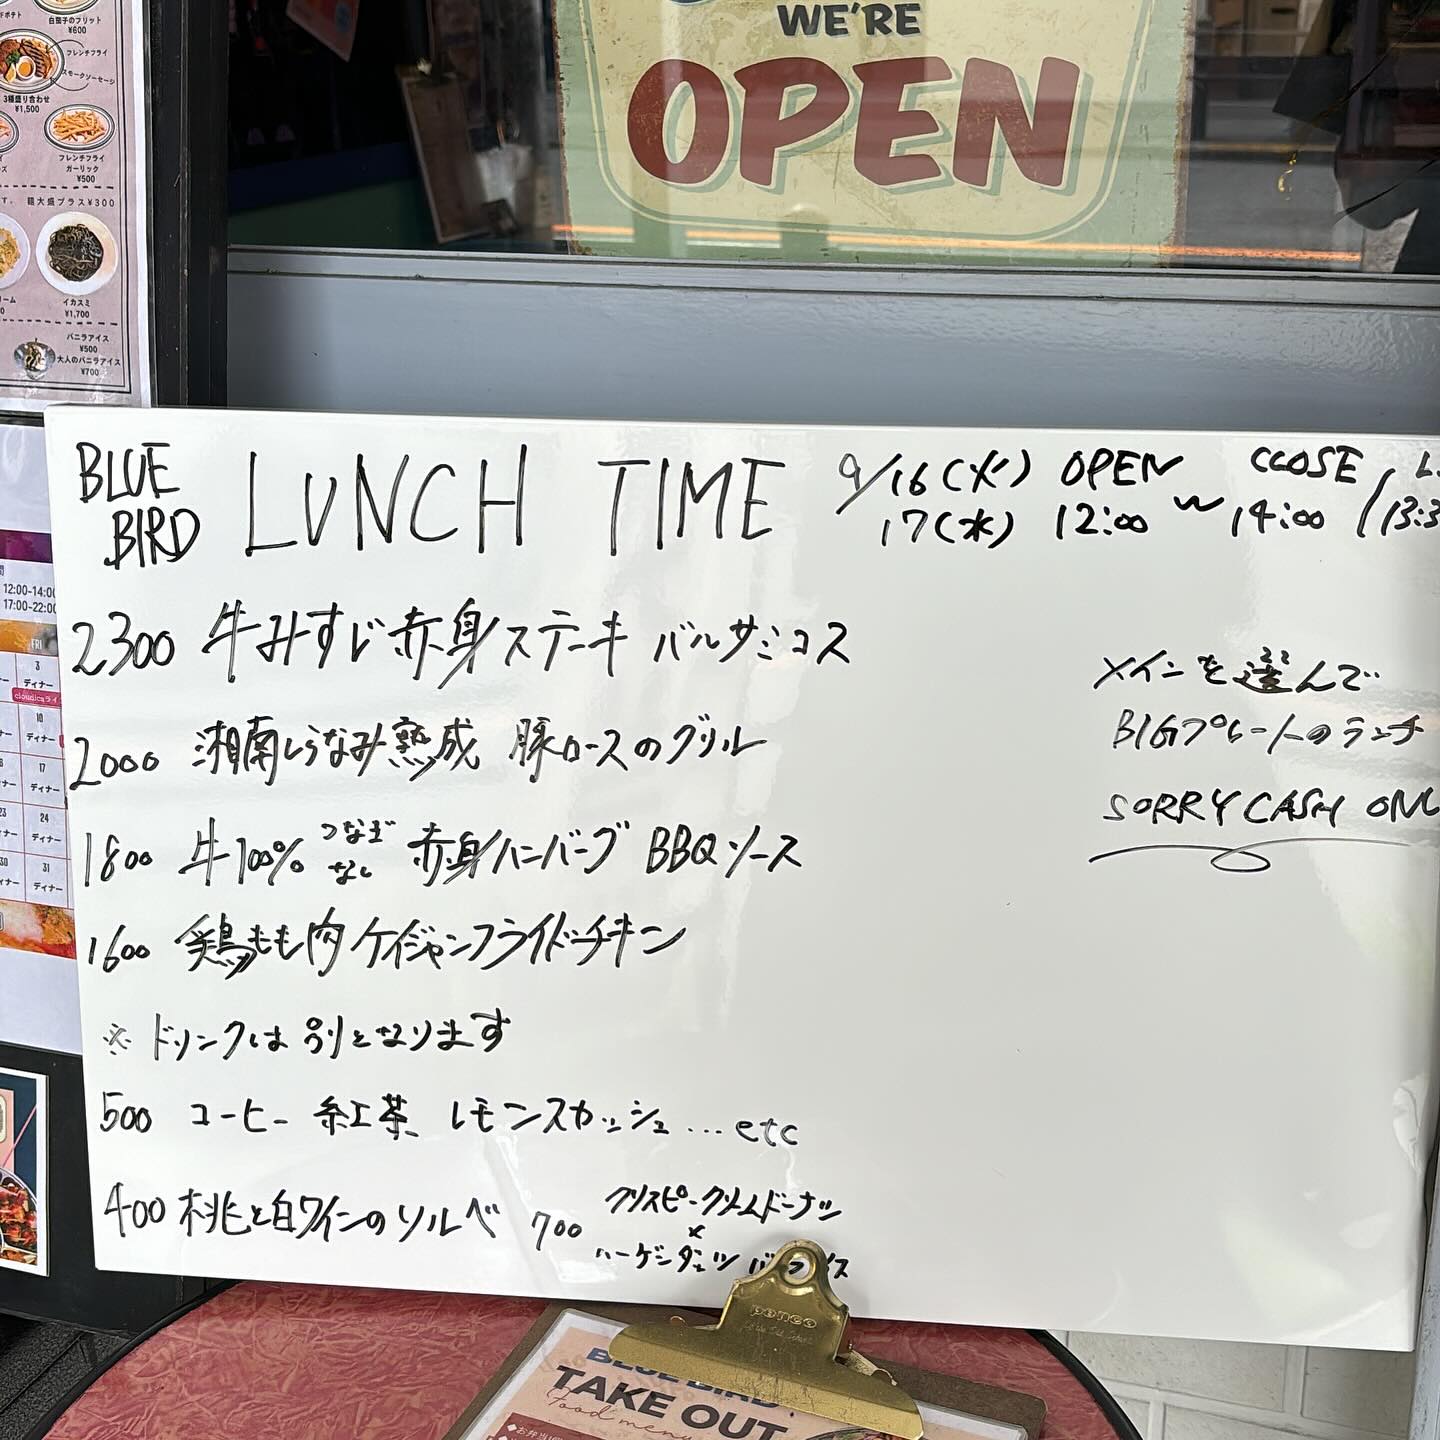 白茄子のフリット
¥600
フレンチフライ
スモークソーセージ
3種盛り合わせ
¥1,500
フレンチフライ
ガーリック
¥500
麺大盛プラス¥300
イカスミ
¥1,700
バニラアイス
¥500
大人のバニラアイス
¥700
WE'RE
OPEN
BLUE BIRD
LUNCH TIME
9/16(火) OPEN CLOSE
17(水) 12:00 〜 14:00 / 13:3
2300 牛みすじ赤身ステーキ バルサミコス
2000 湘南しらなみ熟成 豚ロースのグリル
1800 牛100% つなぎなし 赤身ハンバーグ BBQソース
1600 鶏もも肉 ケイジャンフライドチキン
※ ドリンクは別となります
500 コーヒー 紅茶 レモンスカッシュ…etc
400 桃と白ワインのソルベ
700 クリスピークリームドーナツ
×
ハーゲンダッツ
メインを選んで
BIGプレートのランチ
SORRY CASH ONL
12:00-14:00
17:00-22:00
FRI
3
ディナー
10
ディナー
17
ディナー
24
ディナー
31
ディナー
penco
BLUE BIRD
TAKE OUT
Food menu